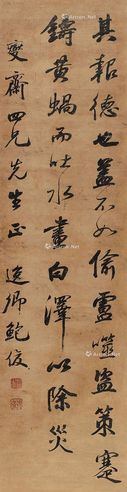 其報德也蓋不如偷盧噬盜策蹇
鑄黃蝸而吐水畫白澤以除災
燮齋四兄先生正 逸卿鮑俊